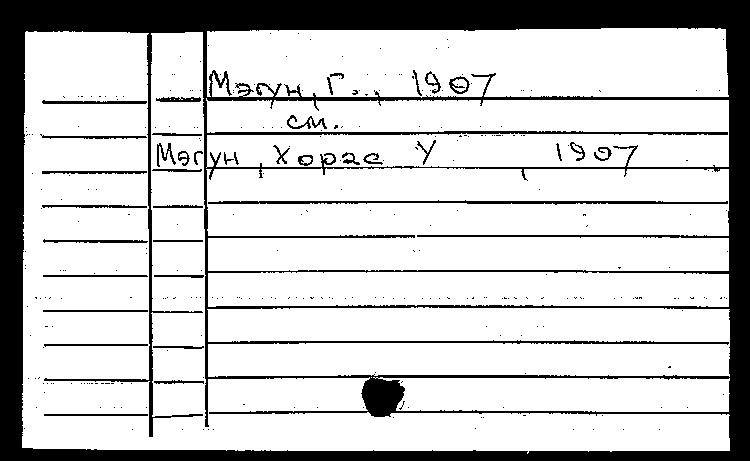 Мэгун, Г.., 1907
см.
Мэгун, Хорас У , 1907